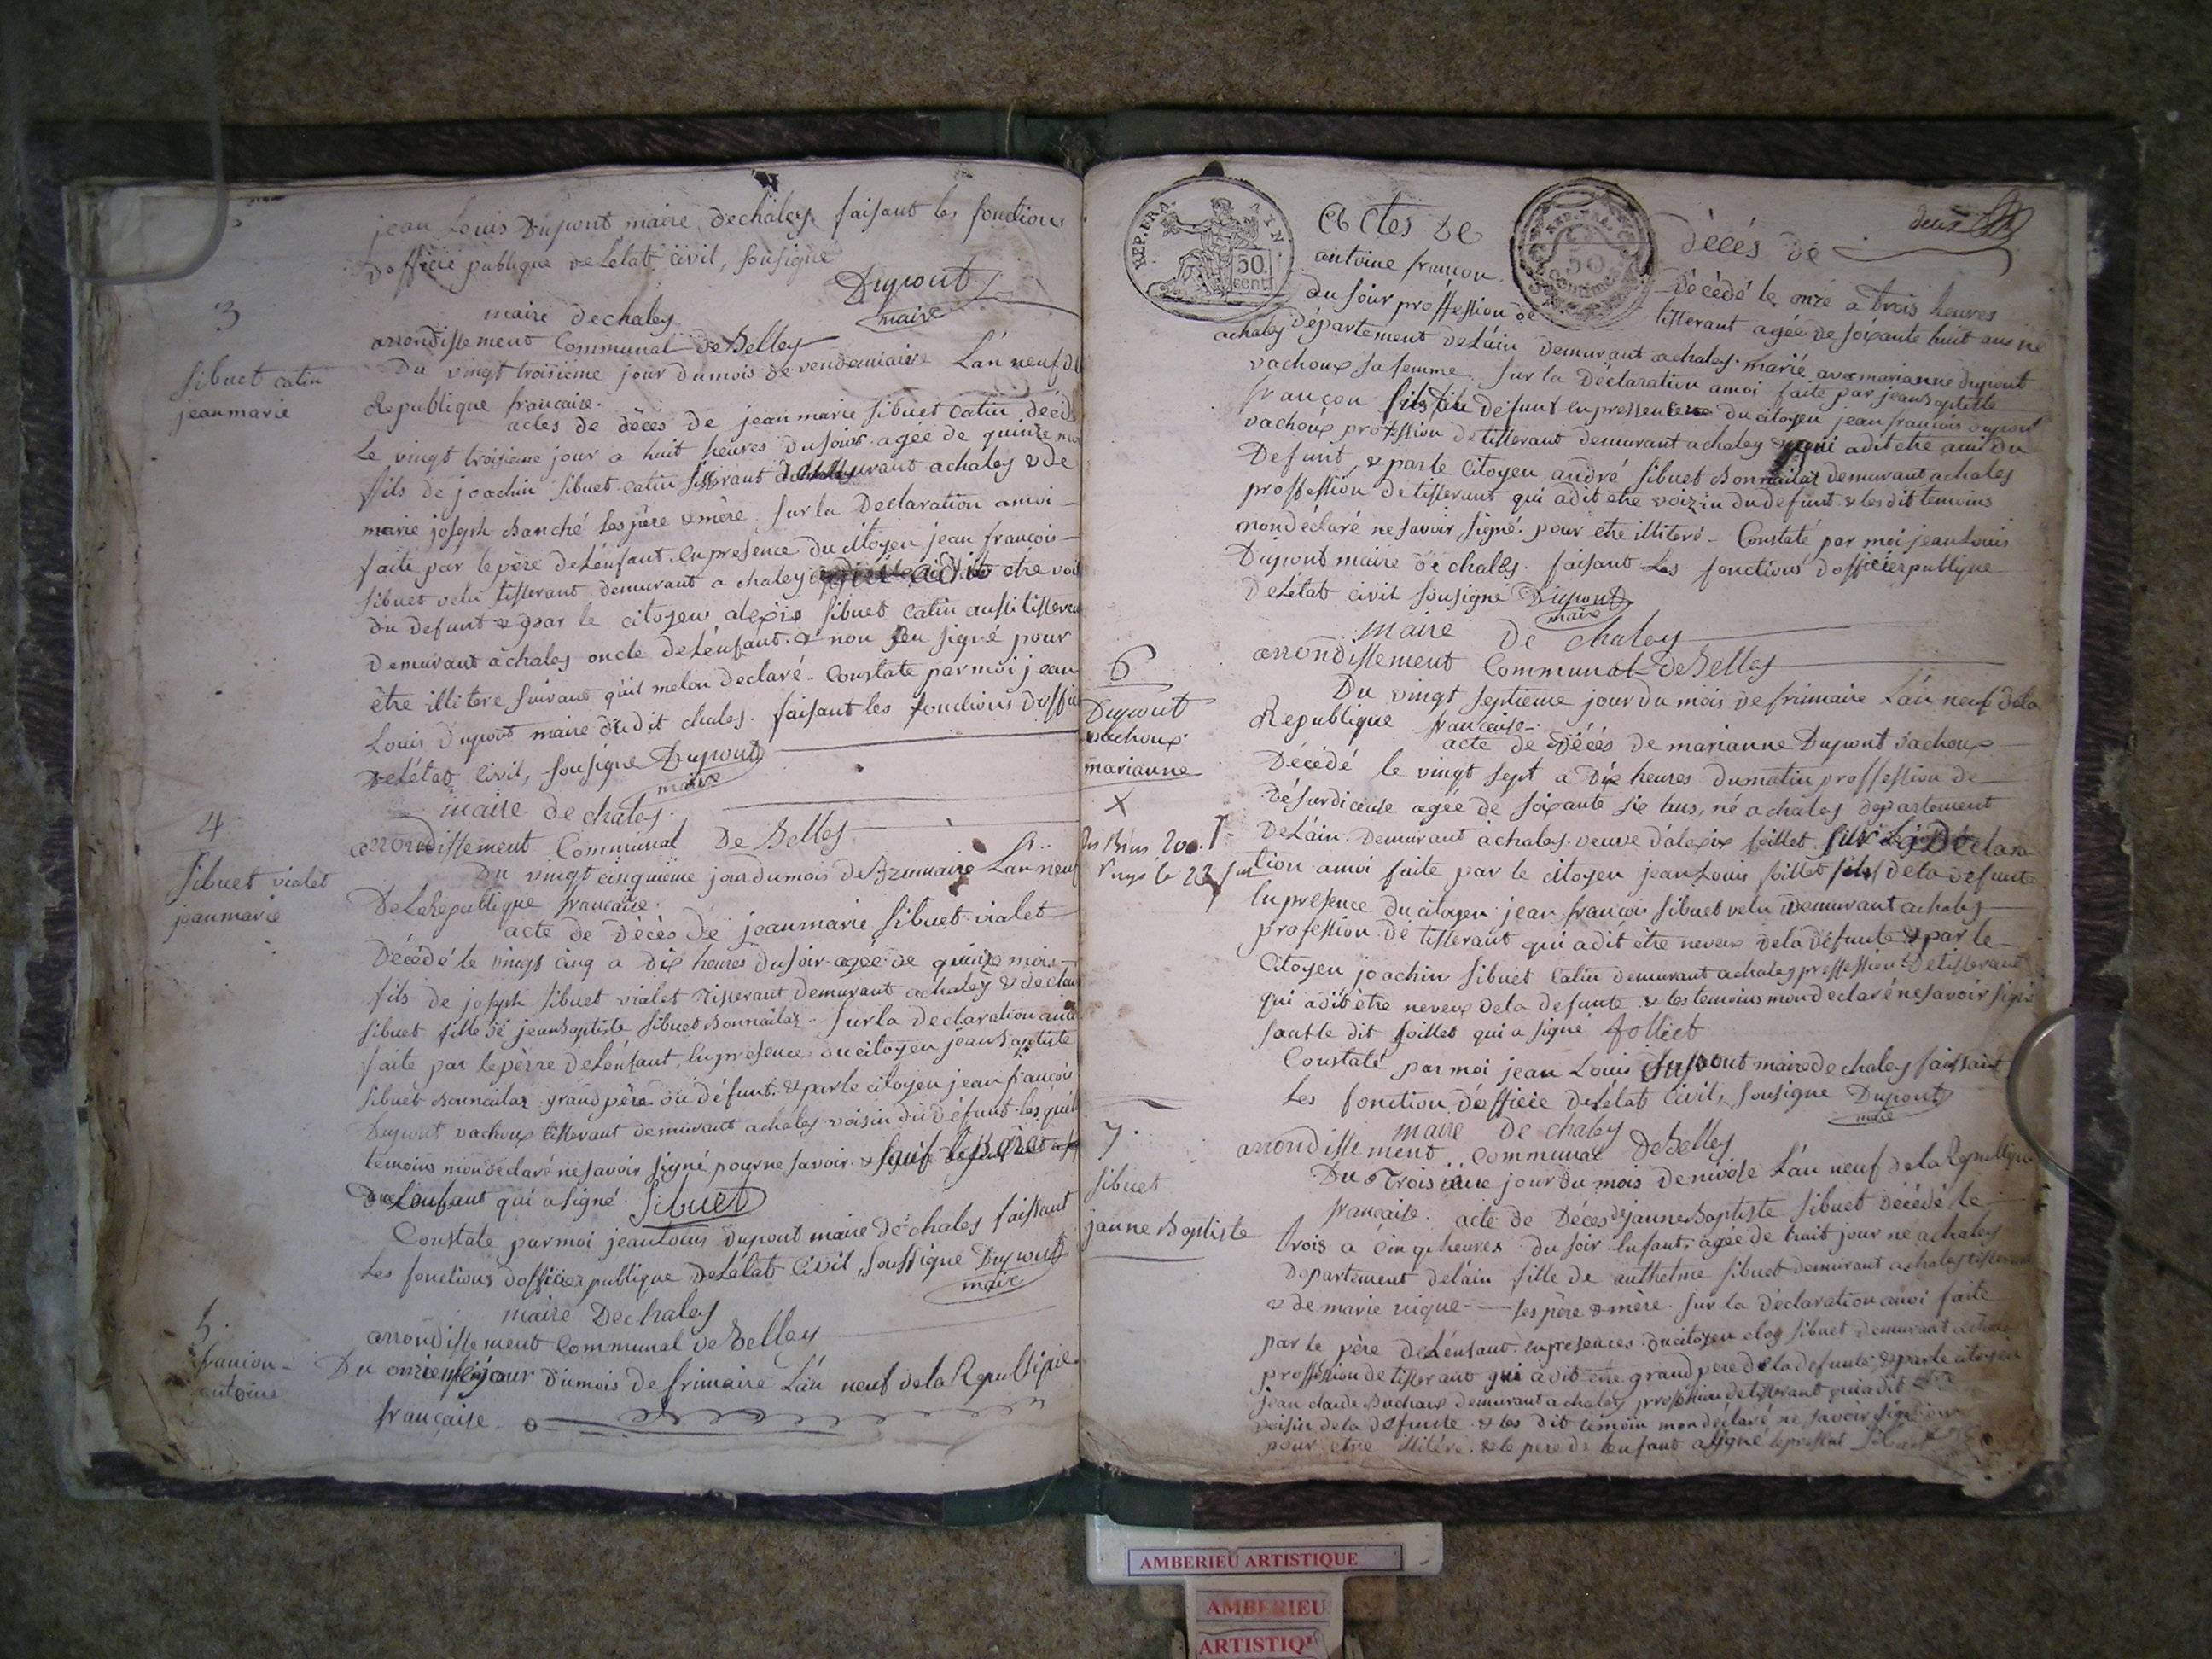 jean Louis Dupont maire dechaley faisant les fonctions
dofficie publique de Létat civil, sousigné
Dupont
maire
3
sibuet catin
jeanmarie
maire dechaley
arrondissement Communal de Belley
Du vingt troisieme jour dumois de vendemiaire Lan neuf de
Republique francaise.
actes de décés de jean marie sibuet catin décéd
Le vingt troisieme jour a huit heures dusoir agée de quinze mo
fils de joachin sibuet catin tisserant demeurant achaley & de
marie joseph Banché ses père & mère sur la Declaration amoi
faite par le père deLénfant. en presence du citoyen jean francois
sibuet velu tisserant demurant a chaley qui adit etre voi
du defunt & par le citoyen alexis sibuet catin aussi tisseran
Demurant achaley oncle deLénfant. & non su signé pour
être illitere suivant quil melon declaré. Constate parmoi jean
Louis Dupont maire dudit chaley. faisant les fonctions doffici
deLétat Civil, sousigne Dupont
maire
maire de chaley
4
sibuet vialet
jeanmarie
arrondissement Communal De Belley
Du vingt cinquieme jour dumois de Brumaire Lan neuf
DeLaRepublique francaise.
acte de Décès de jeanmarie sibuet vialet
Décédé le vingt cinq a dix heures dusoir agée de quinze mois
fils de joseph sibuet vialet tisserant demurant achaley & declau
sibuet fille de jeanBaptiste sibuet Bonnailaz. sur la declaration amoi
faite par lepère deLénfant, Enpresence ducitoyen jeanBaptiste
sibuet Bonnailaz grand père du défunt. & parle citoyen jean francois
Dupont vachoux tisserant demurant achaley voisin du défunt lesquels
temoins mondeclaré nesavoir signé pour ne savoir. & sauf le père
deLenfant qui asigné Sibuet
Constate parmoi jeanLouis Dupont maire de chaley faissant
Les fonctions dofficier publique deLétat Civil, soussigne Dupont
maire
maire Dechaley
arrondissement Communal de Belley
5.
francon
antoine
Du onzieme jour dumois de frimaire Lán neuf dela Republique
française.
deux
Actes de Décés de
antoine francon Décédé le onze a trois heures
du soir proffession de tisserant agée de soixante huit ans né
achaley département deLáin demurant achaley. marié avec marianne dupont
vachoux safemme. sur la Déclaration amoi faite par jeanBaptiste
françon fils du defunt en pressence du citoyen jean françois dupont
vachoux profession de tisserant demurant achaley & qui adit etre ami du
Defunt, & parle Citoyen andré sibuet Bonnailaz demurant achaley
proffession de tisserant qui adit etre voizin du defunt & les dit temoins
mondéclaré nesavoir signé. pour etre illiteré. Constaté par moi jeanLouis
Dupont maire de chaley. faisant Les fonctions dofficier publique
DeLétat civil sousigne Dupont
maire
maire de chaley
6
Dupont
vachoux
marianne
X
arrondissement Communal de Belley
Du vingt septieme jour du mois de frimaire Lán neuf dela
Republique francaise.
acte de Décés de marianne Dupont vachoux
Décédé le vingt sept a Dix heures dumatin proffession de
agée de soixante six ans, né achaley departement
DeLáin. Demurant achaley. veuve dálexix foillet sur La Déclara
tion amoi faite par le citoyen jeanLouis foillet fils dela defunte
Enpresence ducitoyen jean francois sibuet velu Demurant achaley
profession de tisserant qui adit être neveux dela défunte & par le
Citoyen joachin sibuet catin demurant achaley proffession detisserant
qui adit être neveux dela defunte & les temoins mondeclaré nesavoir signé
sauf le dit foillet qui a signé folliet
Constaté par moi jean Louis Dupont maire de chaley faissant
Les fonction dófficie deLétat Civil, sousigne Dupont
maire
maire de chaley
7.
sibuet
janne Baptiste
arrondissement communal DeBelley
Du Troisieme jour du mois denivose Lán neuf de laRepublique
francaise. acte de Déces de janneBaptiste sibuet Décédé le
trois a cinq heures du soir Enfant, agée de huit jour né achaley
Département delain fille de anthelme sibuet demurant achaley tisserant
& de marie nique ses père & mère. sur la déclaration amoi faite
par le père deLénfant. Enpresences ducitoyen eloy sibuet demurant achaley
proffession de tisserant qui adit etre grand pere dela defunte, & parle citoyen
jean claude Buchoux demurant achaley proffession detisserant qui adit être
voisin dela défunte. & les dit temoin mondéclaré ne savoir signé
pour etre illitéré. & le pere de lenfant a signé le pressent Sibuet
REP. FRA.
50
cent.
AMBERIEU ARTISTIQUE
AMBERIEU
ARTISTIQU